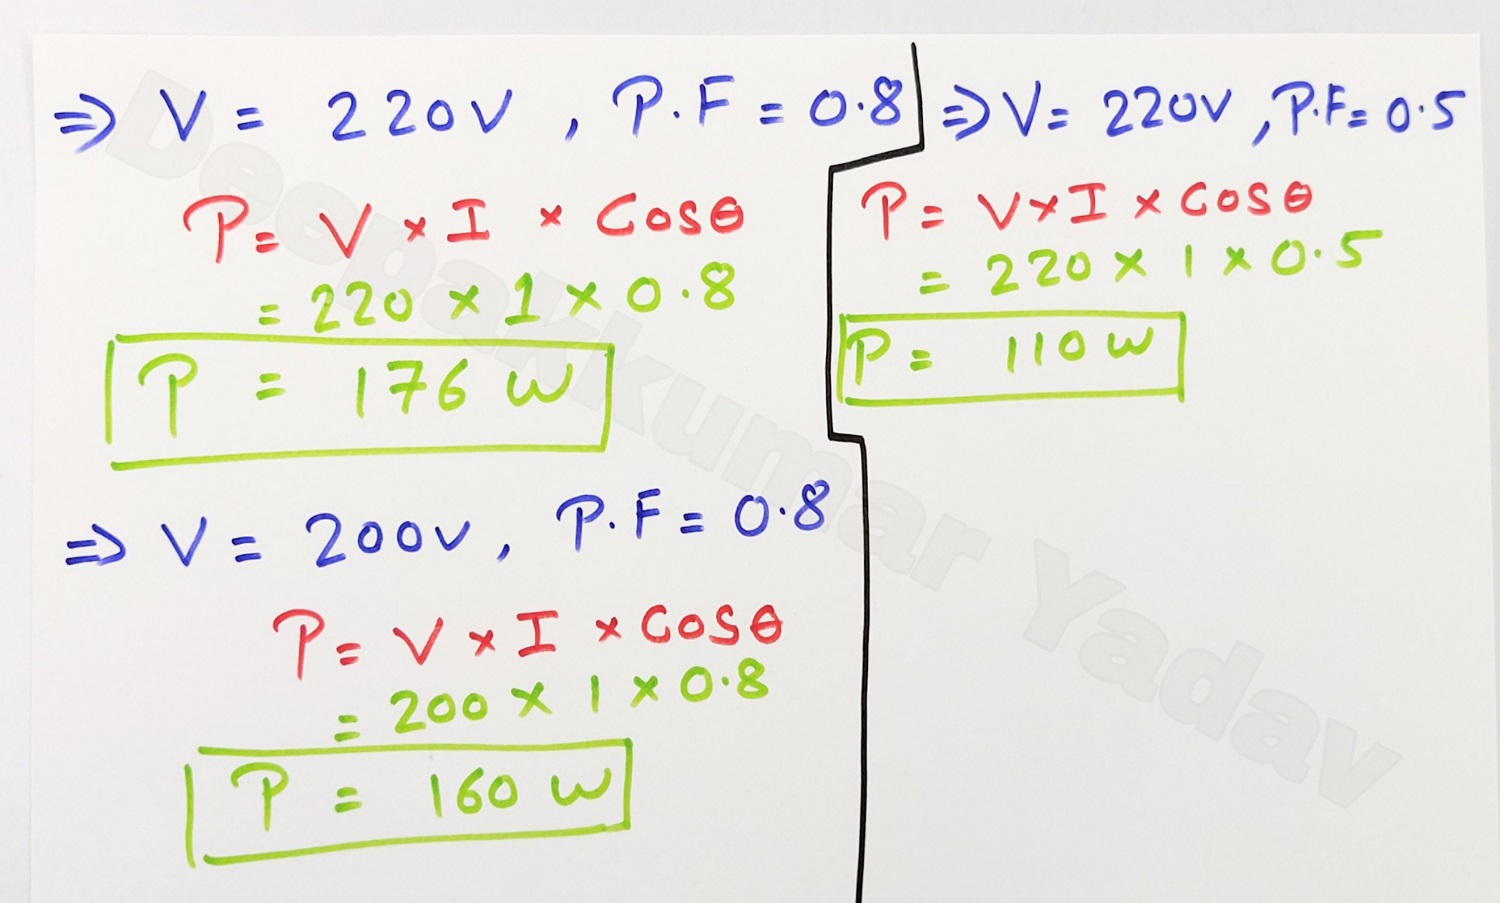 ⇒ V = 220V , P.F = 0.8
P = V × I × Cosθ
= 220 × 1 × 0.8
P = 176 W
⇒ V = 200V , P.F = 0.8
P = V × I × Cosθ
= 200 × 1 × 0.8
P = 160 W
⇒ V = 220V , P.F = 0.5
P = V × I × Cosθ
= 220 × 1 × 0.5
P = 110 W
Deepakkumar Yadav